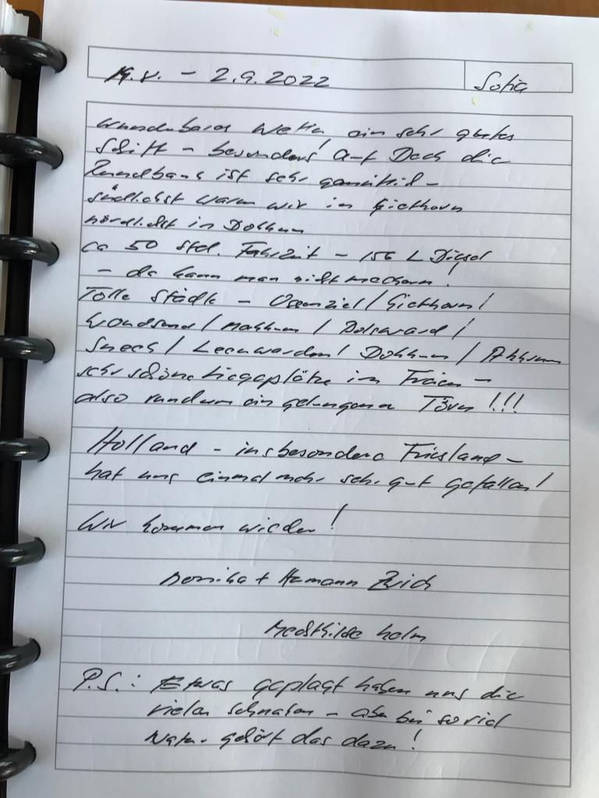 19.8. - 2.9.2022 Sofia
Wunderbares Wetter, ein sehr gutes
Schiff - besonders! Auf Deck die
Rundbank ist sehr gemütlich -
südlichst waren wir in Giethoorn
nördlichst in Dokkum
ca 50 Std. Fahrzeit - 156 L Diesel
- da kann man nicht meckern!
Tolle Städte - Ossenziel / Giethoorn /
Woudsend / Makkum / Bolsward /
Sneek / Leeuwarden / Dokkum / Akkrum
sehr schöne Liegeplätze im Freien -
also rundum ein gelungener Törn!!!
Holland - insbesondere Friesland -
hat uns einmal mehr sehr gut gefallen!
Wir kommen wieder!
Monika + Hermann
Mechthilde Helm
P.S.: Etwas geplagt haben uns die
vielen Schnaken - aber bei so viel
Natur gehört das dazu!